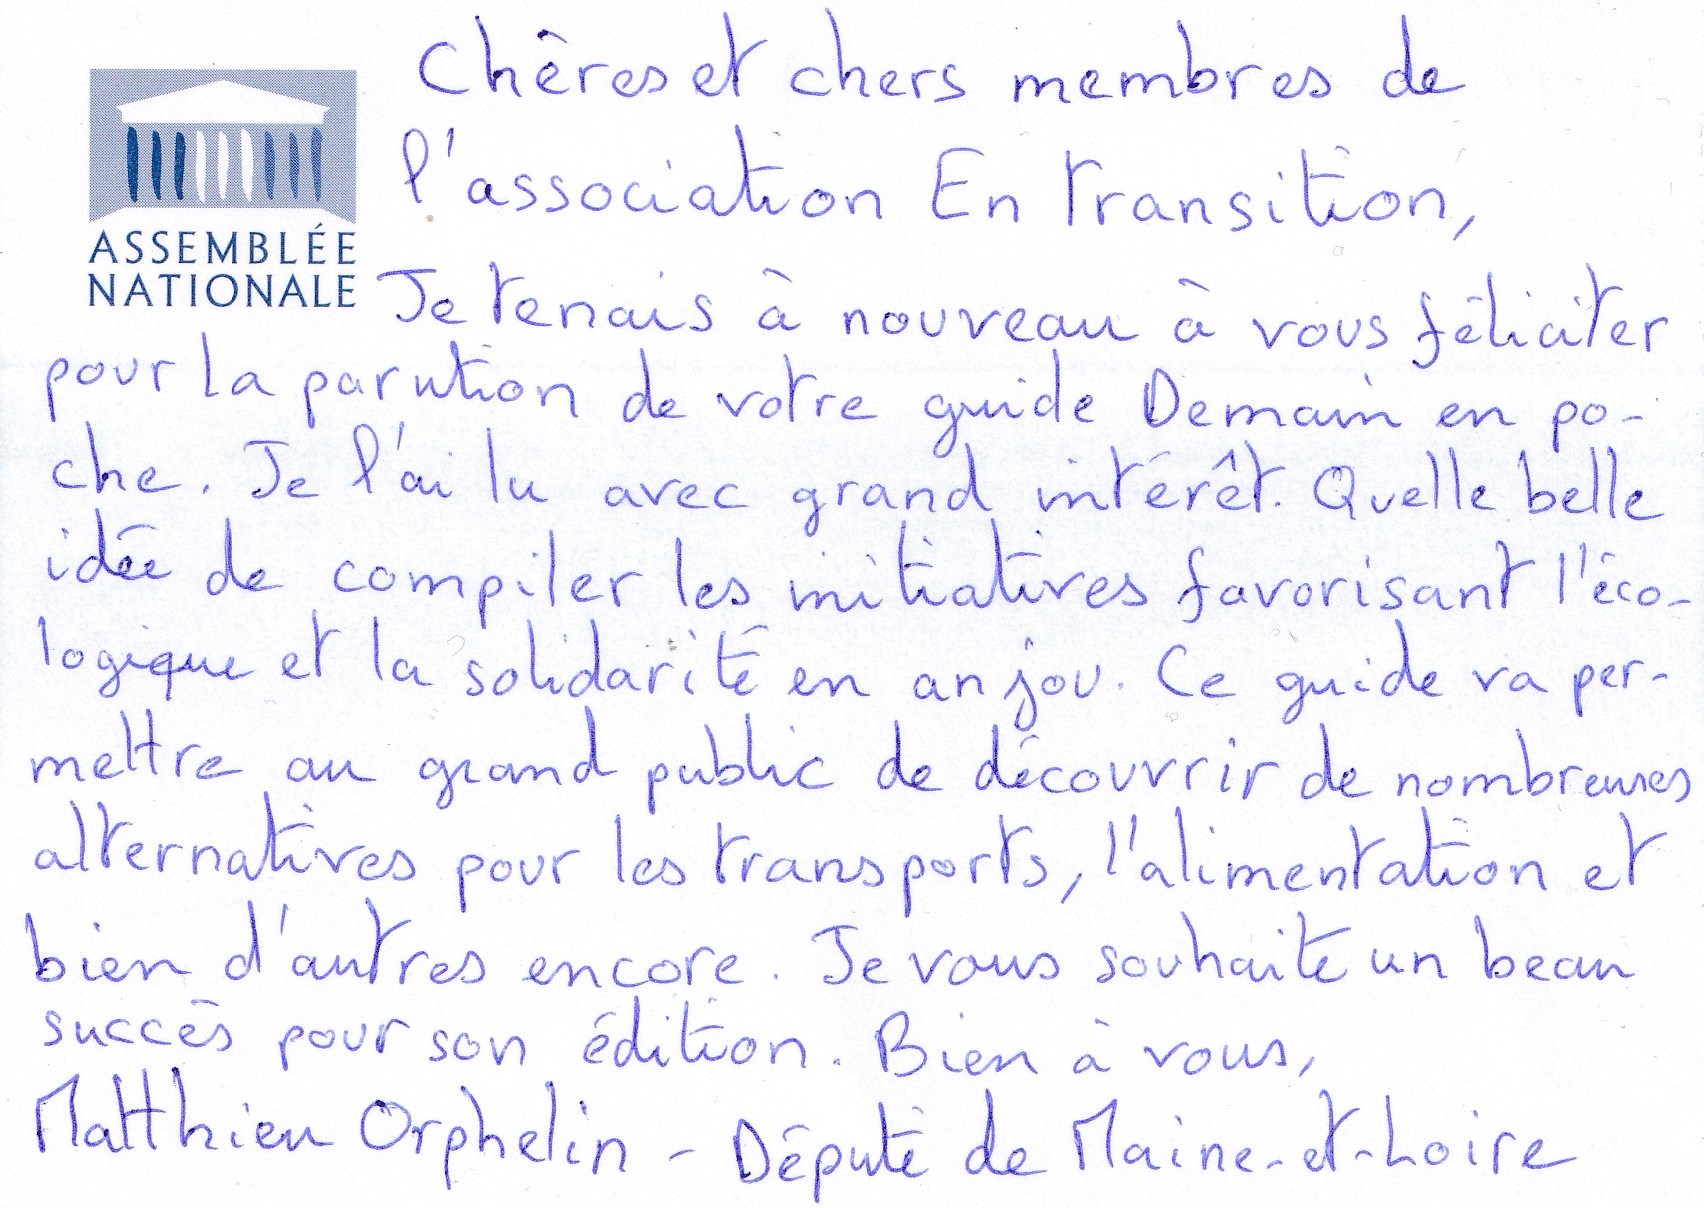 Chères et chers membres de
l'association En Transition,
ASSEMBLÉE
NATIONALE
Je tenais à nouveau à vous féliciter
pour la parution de votre guide Demain en po-
che. Je l'ai lu avec grand intérêt. Quelle belle
idée de compiler les initiatives favorisant l'éco-
logique et la solidarité en anjou. Ce guide va per-
mettre au grand public de découvrir de nombreuses
alternatives pour les transports, l'alimentation et
bien d'autres encore. Je vous souhaite un beau
succès pour son édition. Bien à vous,
Matthieu Orphelin - Député de Maine-et-Loire